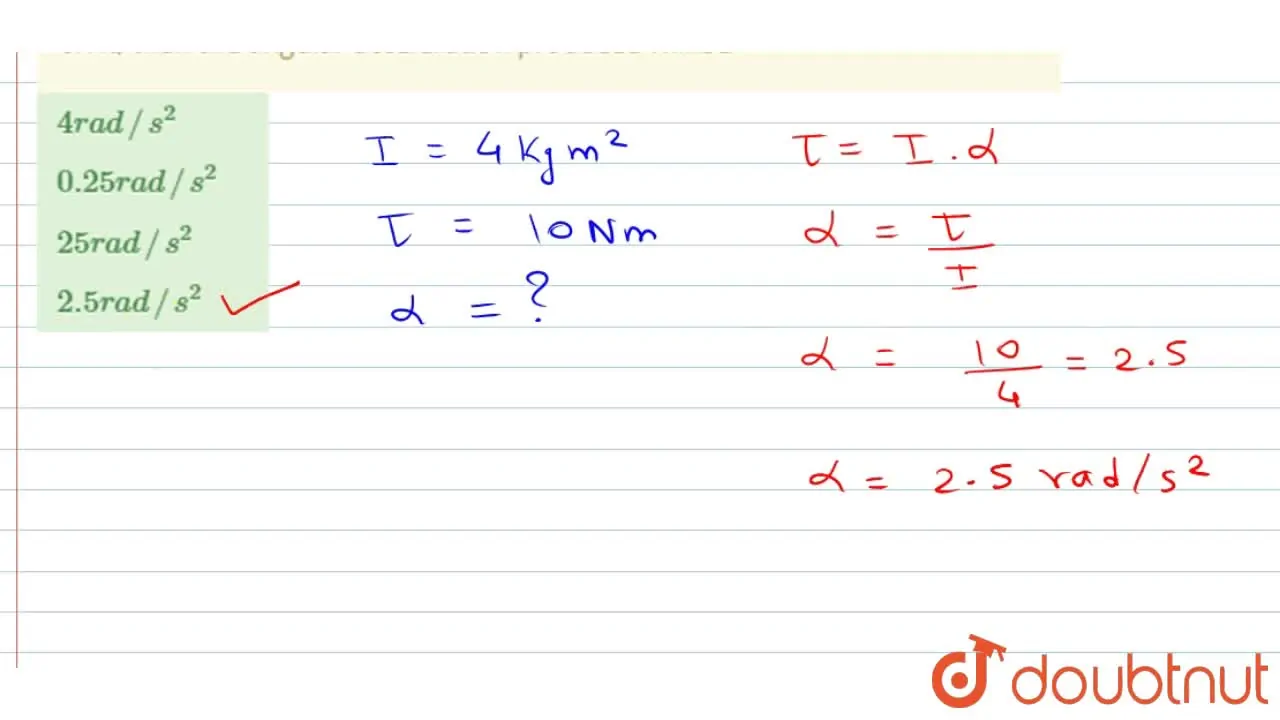 4rad/s²
0.25rad/s²
25rad/s²
2.5rad/s² ✓
I = 4 Kg m²
τ = 10 Nm
α = ?
τ = I . α
α = τ/I
α = 10/4 = 2.5
α = 2.5 rad/s²
doubtnut